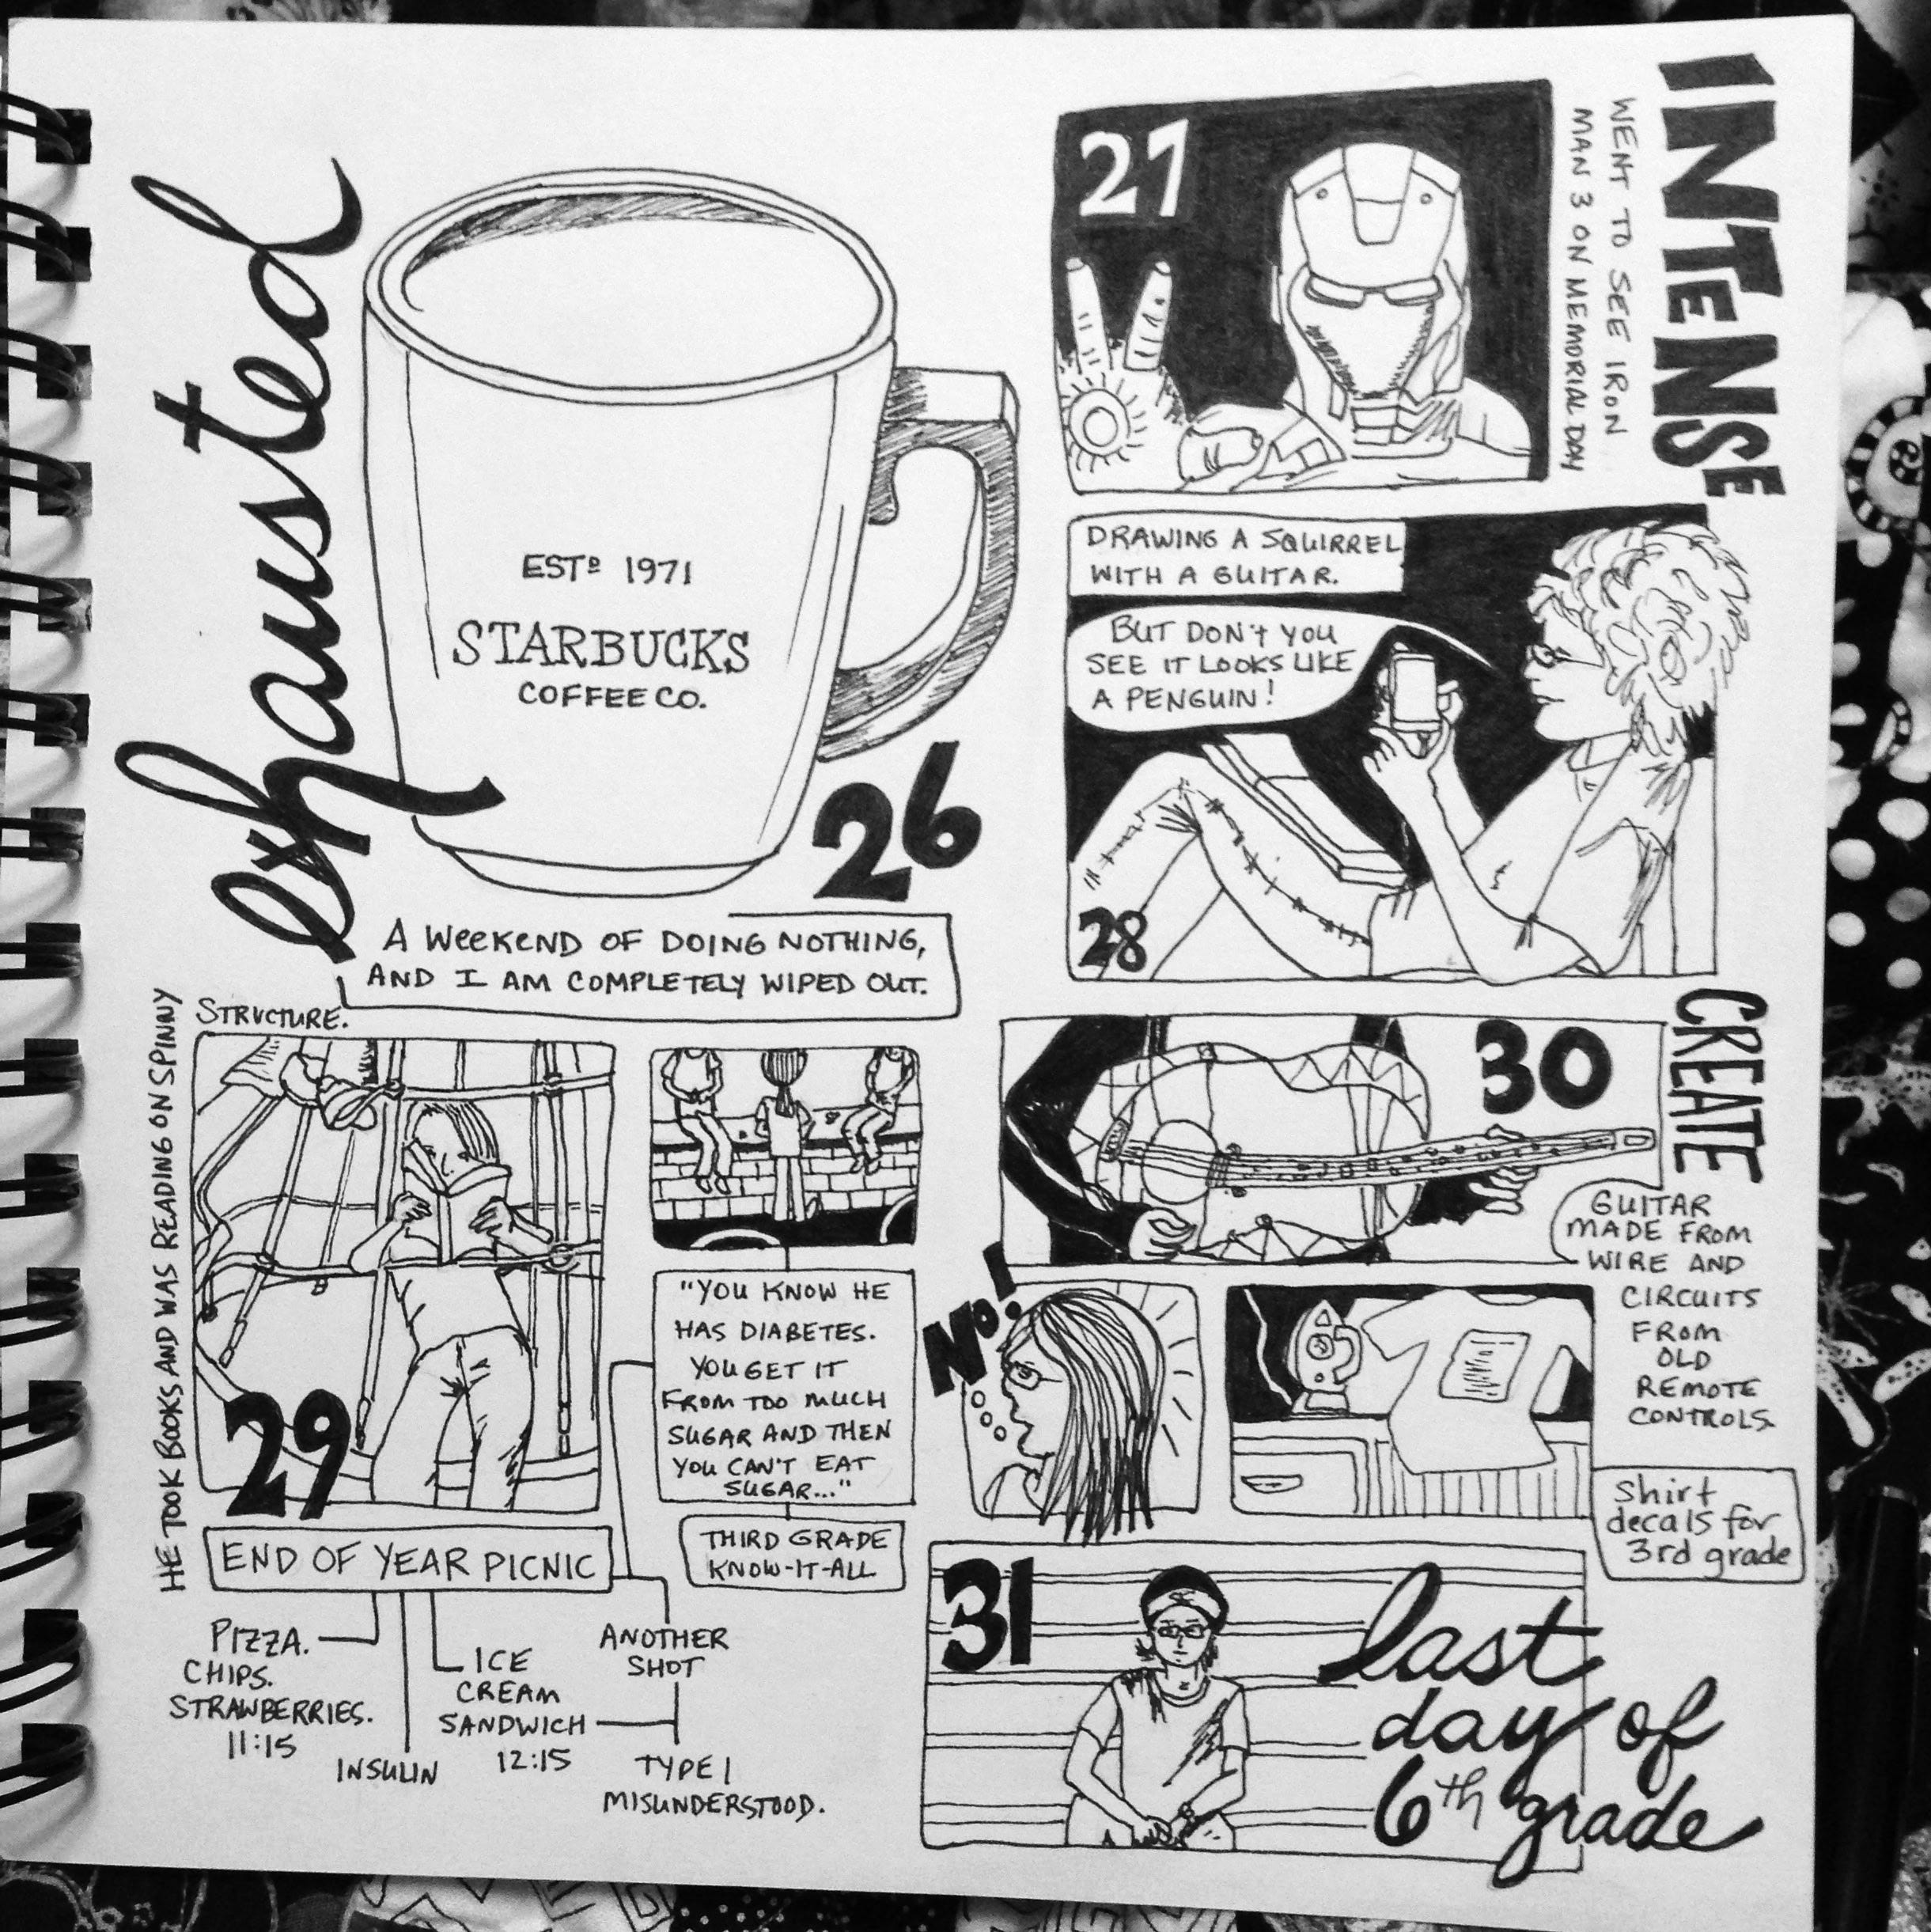 exhausted
ESTD 1971
STARBUCKS
COFFEE CO.
26
A WEEKEND OF DOING NOTHING,
AND I AM COMPLETELY WIPED OUT.
27
INTENSE
WENT TO SEE IRON
MAN 3 ON MEMORIAL DAY
DRAWING A SQUIRREL
WITH A GUITAR.
BUT DON'T YOU
SEE IT LOOKS LIKE
A PENGUIN!
28
HE TOOK BOOKS AND WAS READING ON SPINNY
STRUCTURE.
29
"YOU KNOW HE
HAS DIABETES.
YOU GET IT
FROM TOO MUCH
SUGAR AND THEN
YOU CAN'T EAT
SUGAR..."
THIRD GRADE
KNOW-IT-ALL
END OF YEAR PICNIC
PIZZA.
CHIPS.
STRAWBERRIES.
11:15
INSULIN
ICE
CREAM
SANDWICH
12:15
ANOTHER
SHOT
TYPE 1
MISUNDERSTOOD.
30
CREATE
GUITAR
MADE FROM
WIRE AND
CIRCUITS
FROM
OLD
REMOTE
CONTROLS.
No!
Shirt
decals for
3rd grade
31
last
day of
6th grade